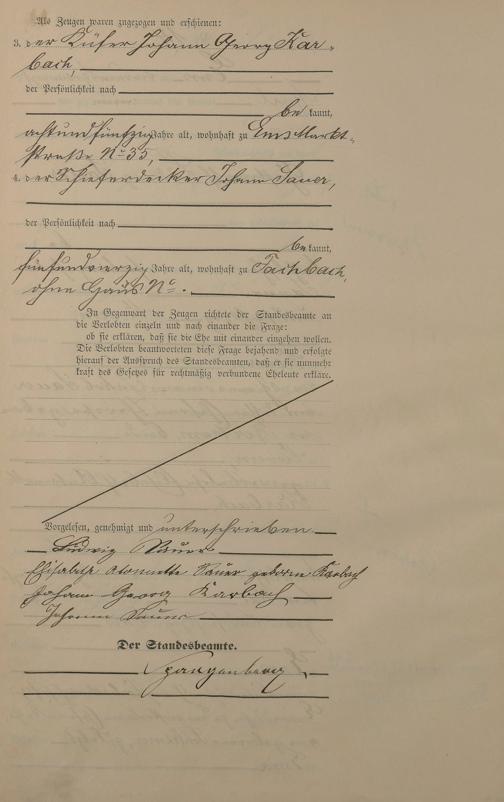 Als Zeugen waren zugezogen und erschienen:
3. der Küfer Johann Georg Kar-
bach,
der Persönlichkeit nach
bekannt,
achtundfünfzig Jahre alt, wohnhaft zu Ems Markt-
straße No 35,
4. der Schieferdecker Johann Sauer,
der Persönlichkeit nach
bekannt,
fünfundvierzig Jahre alt, wohnhaft zu Fachbach,
ohne Haus No.
In Gegenwart der Zeugen richtete der Standesbeamte an
die Verlobten einzeln und nach einander die Frage:
ob sie erklären, daß sie die Ehe mit einander eingehen wollen.
Die Verlobten beantworteten diese Frage bejahend und erfolgte
hierauf der Ausspruch des Standesbeamten, daß er sie nunmehr
kraft des Gesetzes für rechtmäßig verbundene Eheleute erkläre.
Vorgelesen, genehmigt und unterschrieben
Ludwig Sauer
Elisabetha Sauer geborne Karbach
Johann Georg Karbach
Johann Sauer
Der Standesbeamte.
Spangenberg